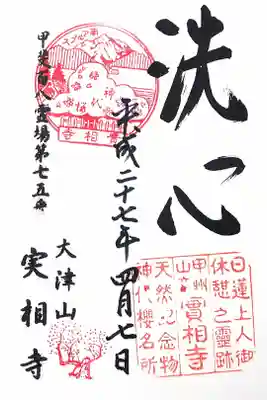 洗心
平成二十七年四月七日
甲斐百八霊場第七五番
大津山
実相寺
日蓮上人御
休憩之霊跡
甲州實相寺
天然記念物
神代櫻名所